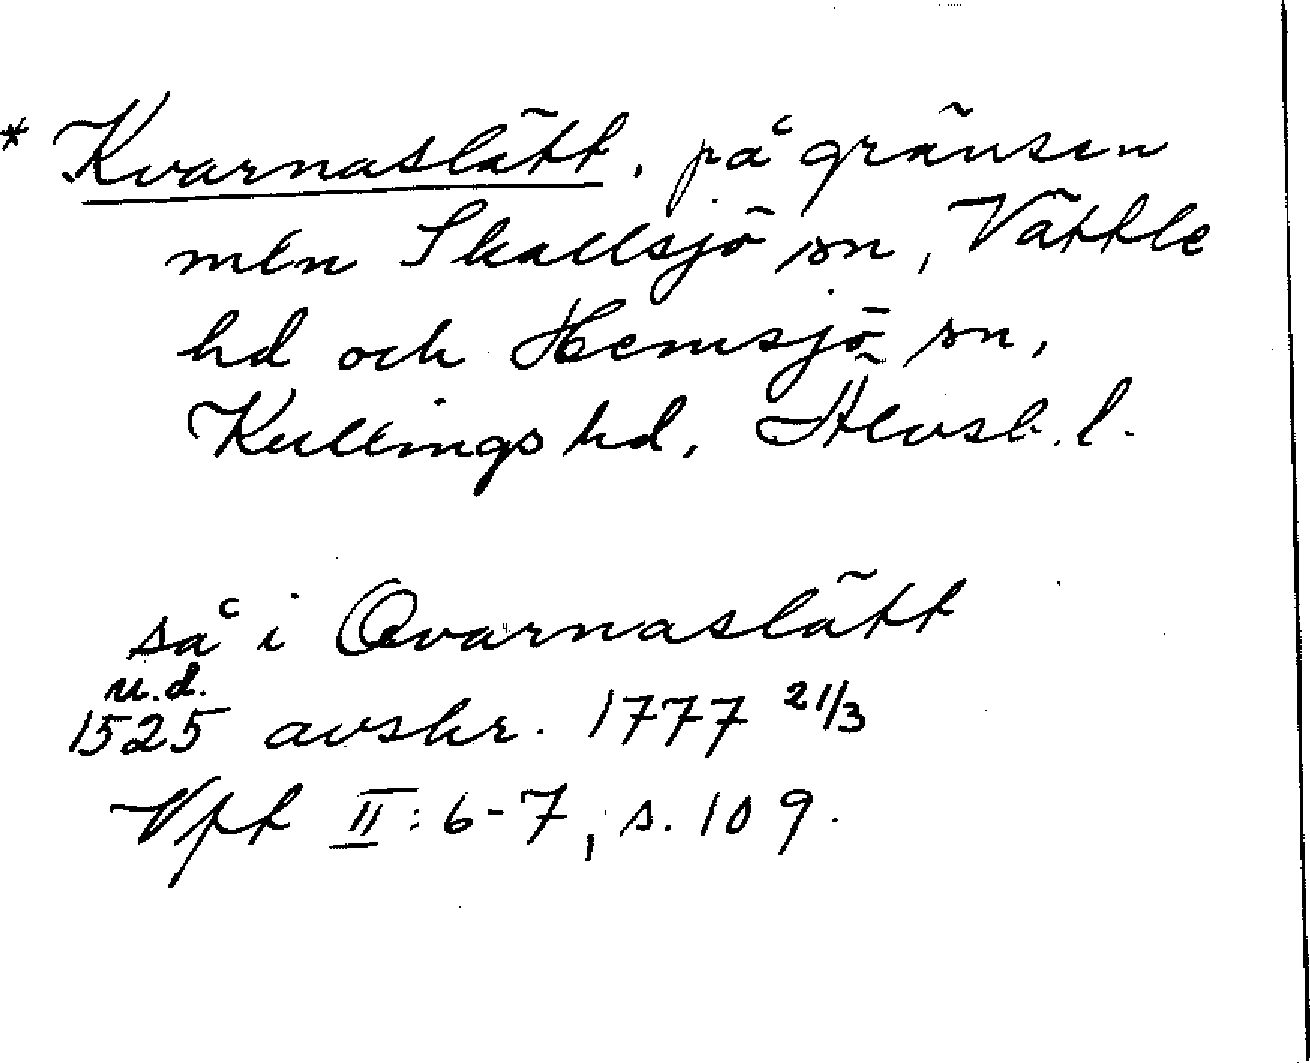 * Kvarnaslätt, på gränsen
mln Skallsjö sn, Vättle
hd och Hemsjö sn,
Kullings hd, Älvsb. l.
så i Qvarnaslätt
u.d.
1525 avskr. 1777 21/3
Vpt II: 6-7, s. 109.